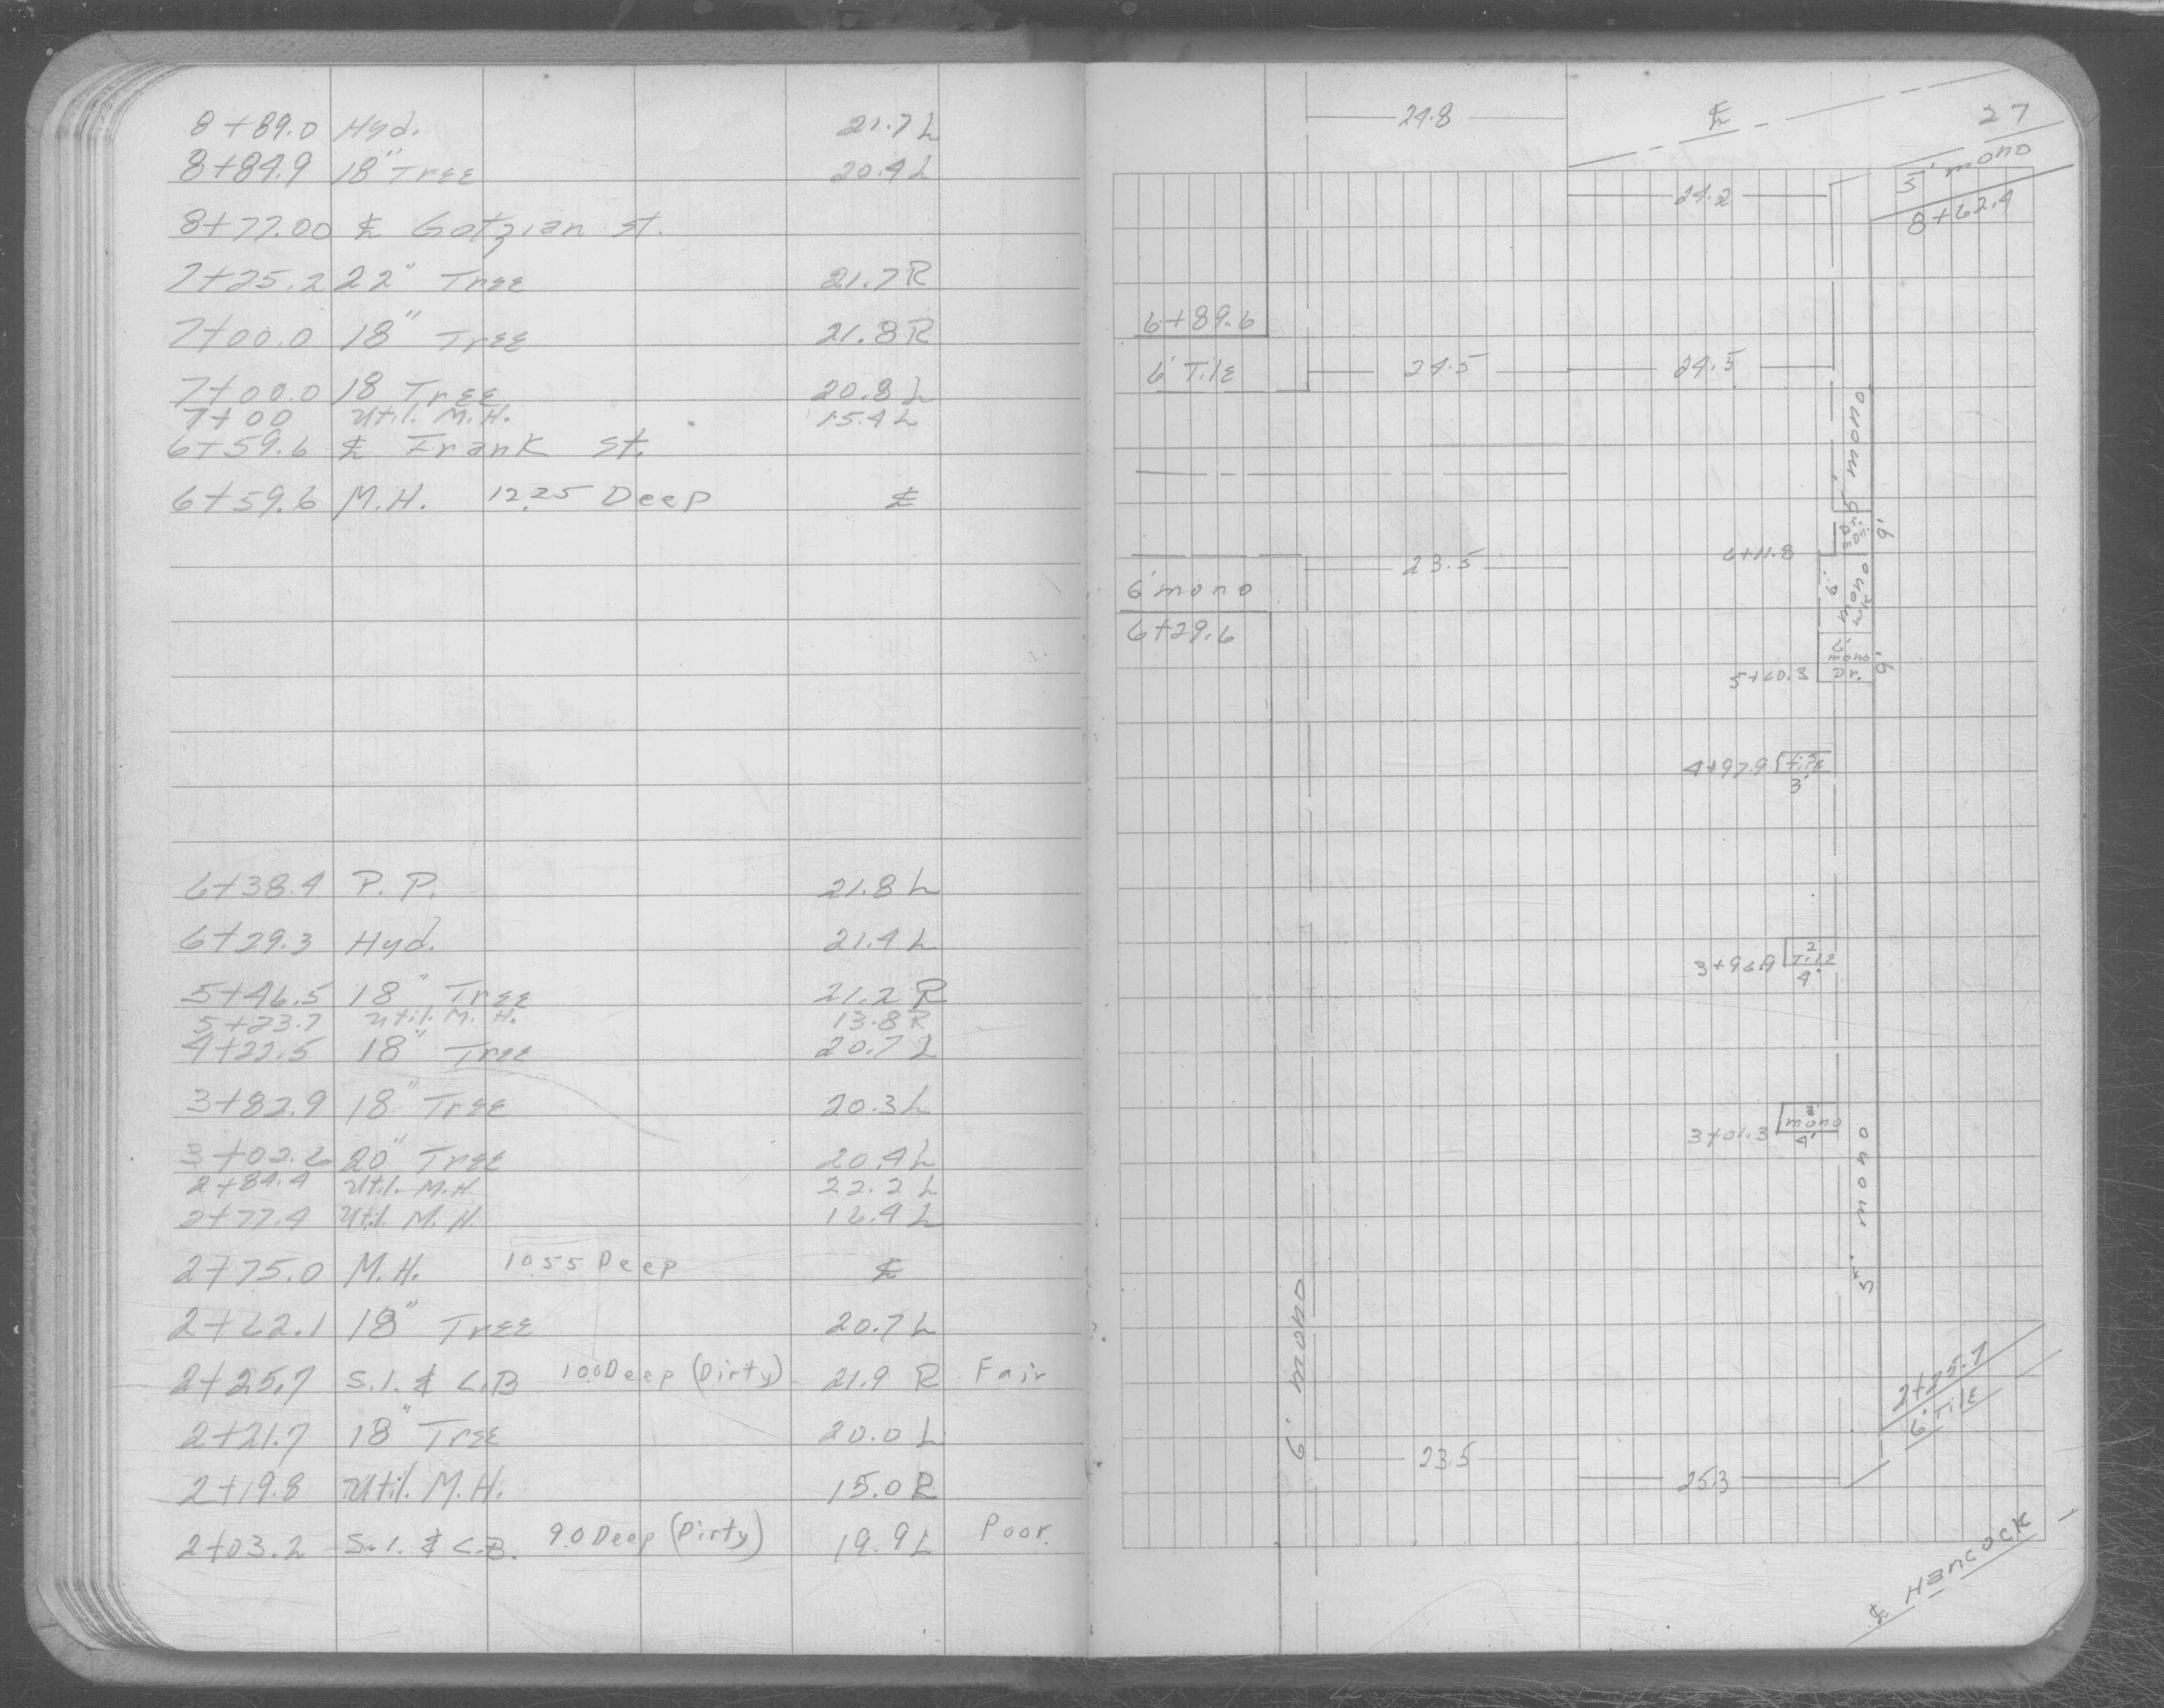 8+89.0 Hyd. 21.7 L
8+84.9 18" Tree 20.4 L
8+77.00 ℄ Gotzian St.
7+25.2 22" Tree 21.7 R
7+00.0 18" Tree 21.8 R
7+00.0 18 Tree 20.8 L
7+00 Util. M.H. 15.4 L
6+59.6 ℄ Frank St.
6+59.6 M.H. 12.25 Deep ℄
6+38.4 P.P. 21.8 L
6+29.3 Hyd. 21.4 L
5+46.5 18" Tree 21.2 R
5+23.7 Util. M.H. 13.8 R
4+22.5 18" Tree 20.7 L
3+82.9 18" Tree 20.3 L
3+02.2 20" Tree 20.4 L
2+84.4 Util. M.H 22.2 L
2+77.4 Util. M.H. 16.4 L
2+75.0 M.H. 10.55 Deep ℄
2+62.1 18" Tree 20.7 L
2+25.7 S.I. & C.B 10.0 Deep (Dirty) 21.9 R Fair
2+21.7 18" Tree 20.0 L
2+19.8 Util. M.H. 15.0 R
2+03.2 S.I. & C.B. 9.0 Deep (Dirty) 19.9 L Poor.
24.8 ℄ 27
5' mono
24.2
8+62.4
6+89.6
6' Tile 24.5 24.5
5' mono
6+11.8 9'
23.5
6' mono
6' mono
6+29.6
6' mono Dr. 9'
5+60.3
4+97.9
3'
3+96.9 2 Tile
4'
3+01.3 3' mono
4'
5' mono
6' mono
2+25.7
6' Tile
23.5
25.3
℄ Hancock